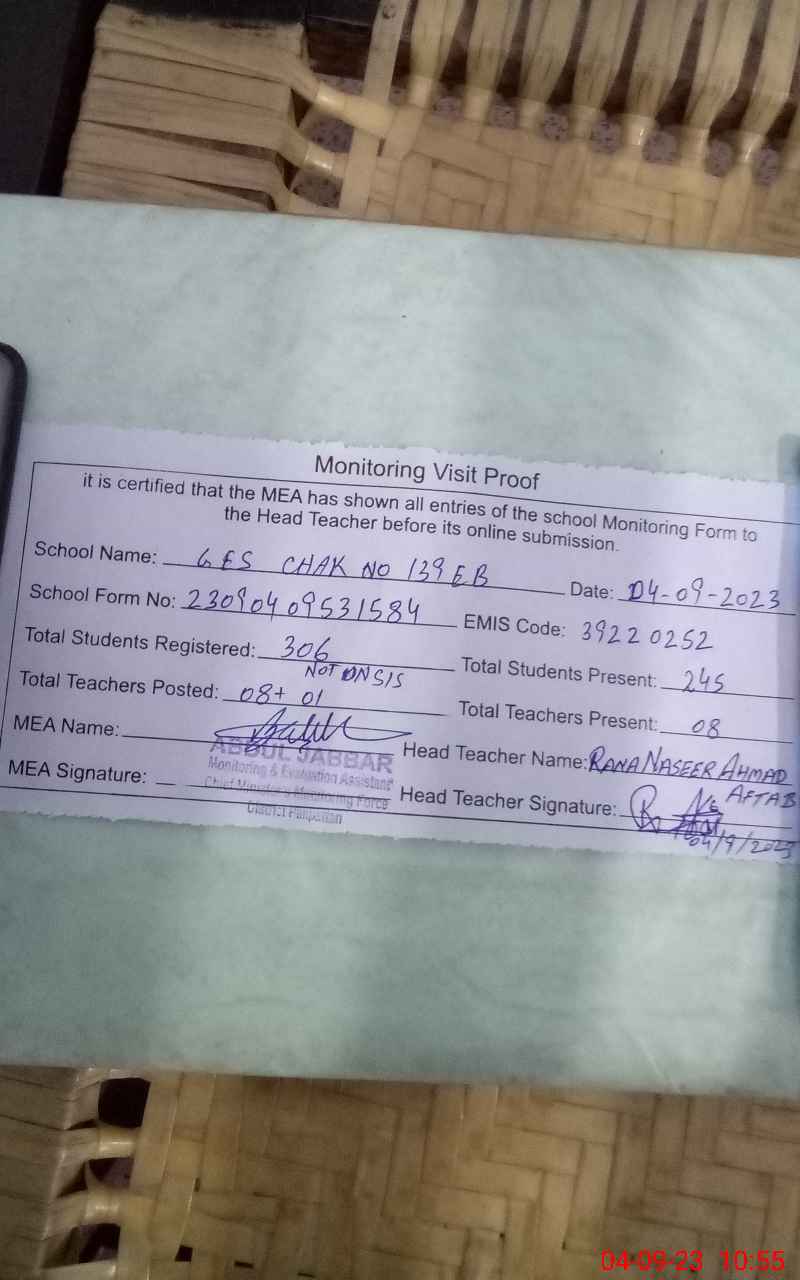 Monitoring Visit Proof
it is certified that the MEA has shown all entries of the school Monitoring Form to
the Head Teacher before its online submission.
School Name: GES CHAK NO 139 EB Date: 04-09-2023
School Form No: 23090409531584 EMIS Code: 39220252
Total Students Registered: 306 Total Students Present: 245
NOT ON SIS
Total Teachers Posted: 08+ 01 Total Teachers Present: 08
MEA Name: Head Teacher Name: RANA NASEER AHMAD
AFTAB
ABDUL JABBAR
Monitoring & Evaluation Assistant
Chief Minister's Monitoring Force
District Pakpattan
MEA Signature: Head Teacher Signature:
04/9/2023
04-09-23 10:55